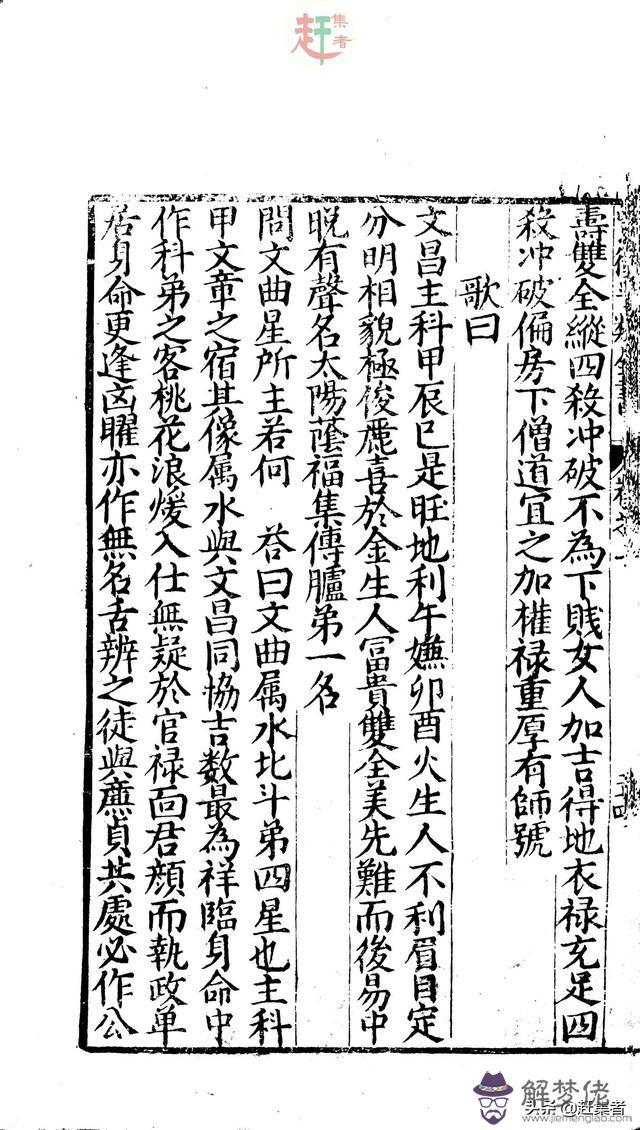 赶集者
壽雙全縱四殺冲破不為下賤女人加吉得地衣禄充足四
殺冲破偏房下僧道宜之加權禄重厚有師號
歌曰
文昌主科甲辰巳是旺地利午嫌卯酉火生人不利眉目定
分明相貌極俊麗喜於金生人冨貴雙全美先難而後易中
晚有聲名太陽蔭福集傳臚第一名
問文曲星所主若何 荅曰文曲属水北斗第四星也主科
甲文章之宿其像属水與文昌同協吉数最為祥臨身命中
作科第之客桃花浪煖入仕無疑於官禄面君顔而執政单
居身命更逢凶曜亦作無名舌辨之徒與亷貞共處必作公
头条@赶集者
解梦佬
www.jiemenglab.com